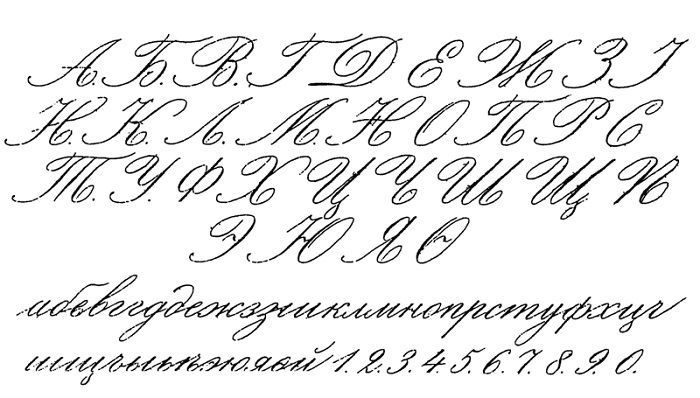 А. Б. В. Г Д Е Ж З І
И. К. Л. М. Н О П Р С
Т. У. Ф Х Ц Ч Ш Щ Ѣ
Э Ю Я Ѳ
абвгдежззиклмнопрстуфхцч
шщъыьѣэюяѳй 1. 2. 3. 4. 5. 6. 7. 8. 9. 0.